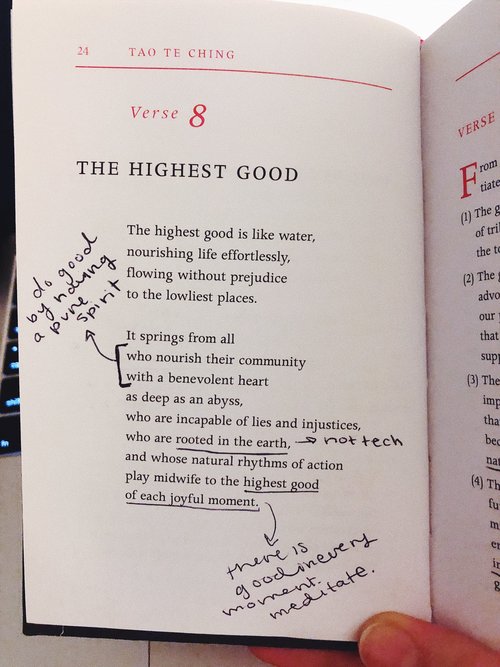 24 TAO TE CHING
Verse 8
THE HIGHEST GOOD
The highest good is like water,
nourishing life effortlessly,
flowing without prejudice
to the lowliest places.
do good
by having
a pure
spirit
It springs from all
who nourish their community
with a benevolent heart
as deep as an abyss,
who are incapable of lies and injustices,
who are rooted in the earth, → not tech
and whose natural rhythms of action
play midwife to the highest good
of each joyful moment.
there is
good in every
moment.
meditate.
VERSE
From
tiate
(1) The g
of tri
the to
(2) The
advo
our
that
supp
(3) The
imp
tha
bec
nat
(4) Th
fu
m
en
in
g